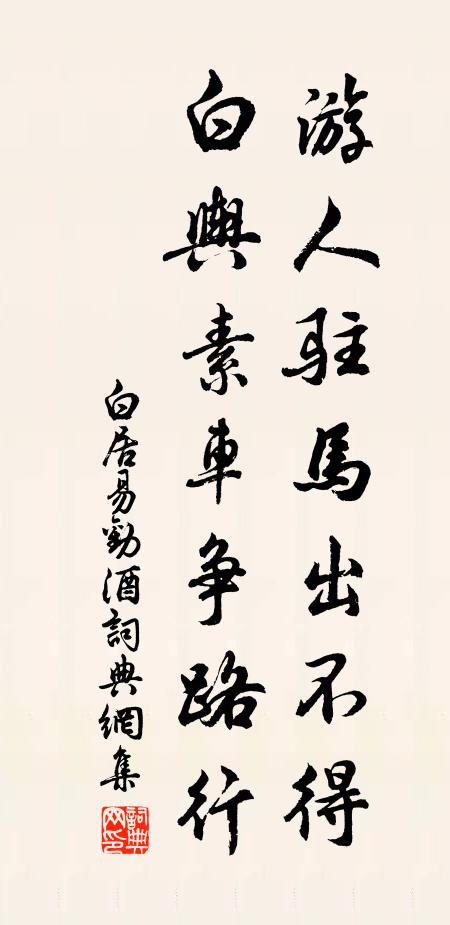 游人驻馬出不得
白輿素車争路行
白居易勸酒詞典網集
詞典
网印